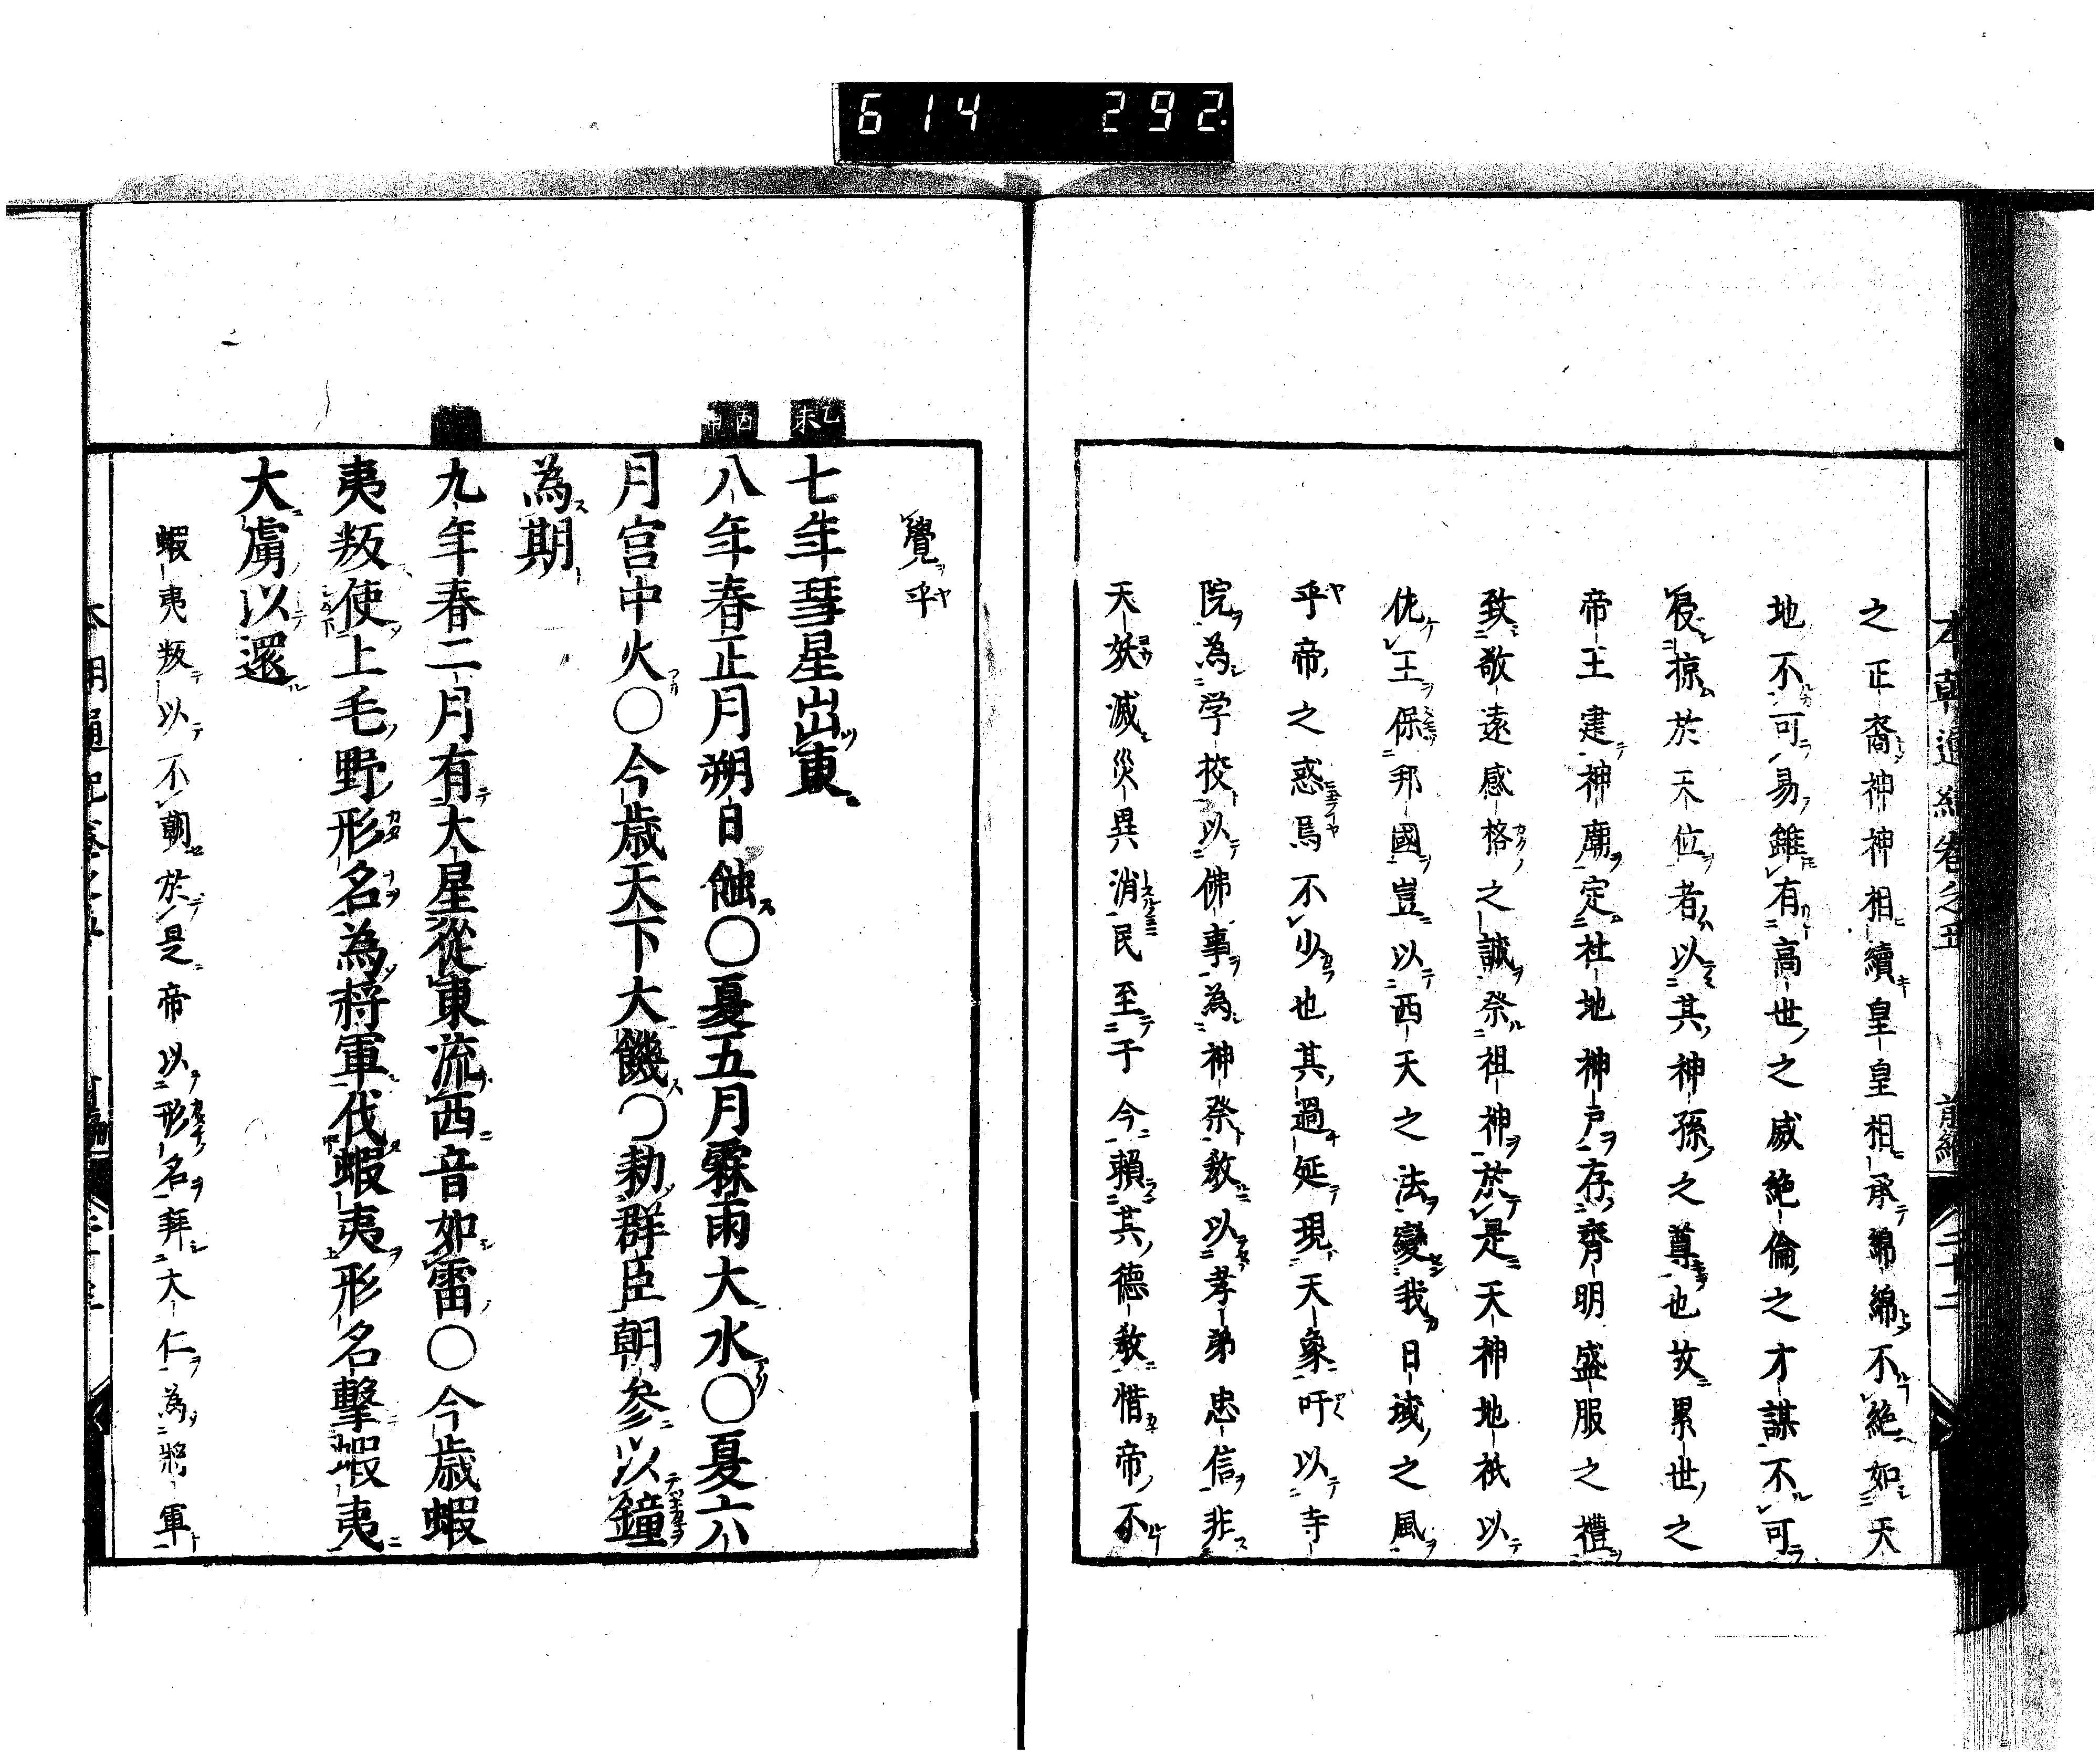 614 292
之正裔神神相續皇皇相承綿綿不絶如天
地不可易雖有高世之威絶倫之才謀不可
侵掠於天位者以其神孫之尊也故累世之
帝王建神廟定社地神戸存齊明盛服之禮
致敬遠感格之誠祭祖神於是天神地祇以
佑王保邦國豈以西天之法變我日域之風
乎帝之惑焉不少也其過延現天象吁以寺
院為学校以佛事為神祭教以孝弟忠信非
天妖滅災異消民至于今頼其德教惜帝不
覺乎
乙未
七年彗星出東
丙申
八年春正月朔日蝕○夏五月霖雨大水○夏六
月宮中火○今歳天下大饑○勅群臣朝参以鐘
為期
九年春二月有大星從東流西音如雷○今歳蝦
夷叛使上毛野形名為将軍伐蝦夷形名擊蝦夷
大虜以還
蝦夷叛以不朝於是帝以形名拜大仁為將軍